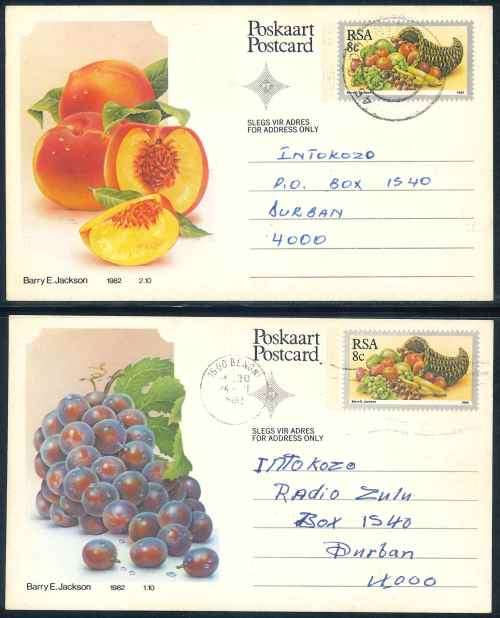 Poskaart
Postcard
RSA
8c
Barry E. Jackson
1982
SLEGS VIR ADRES
FOR ADDRESS ONLY
INTOKOZO
P.O. BOX 1540
DURBAN
4000
Barry E. Jackson 1982 2.10
Poskaart
Postcard
RSA
8c
Barry E. Jackson
1982
1500 BENONI
SLEGS VIR ADRES
FOR ADDRESS ONLY
INTOKOZO
RADIO ZULU
BOX 1540
Durban
4000
Barry E. Jackson 1982 1.10